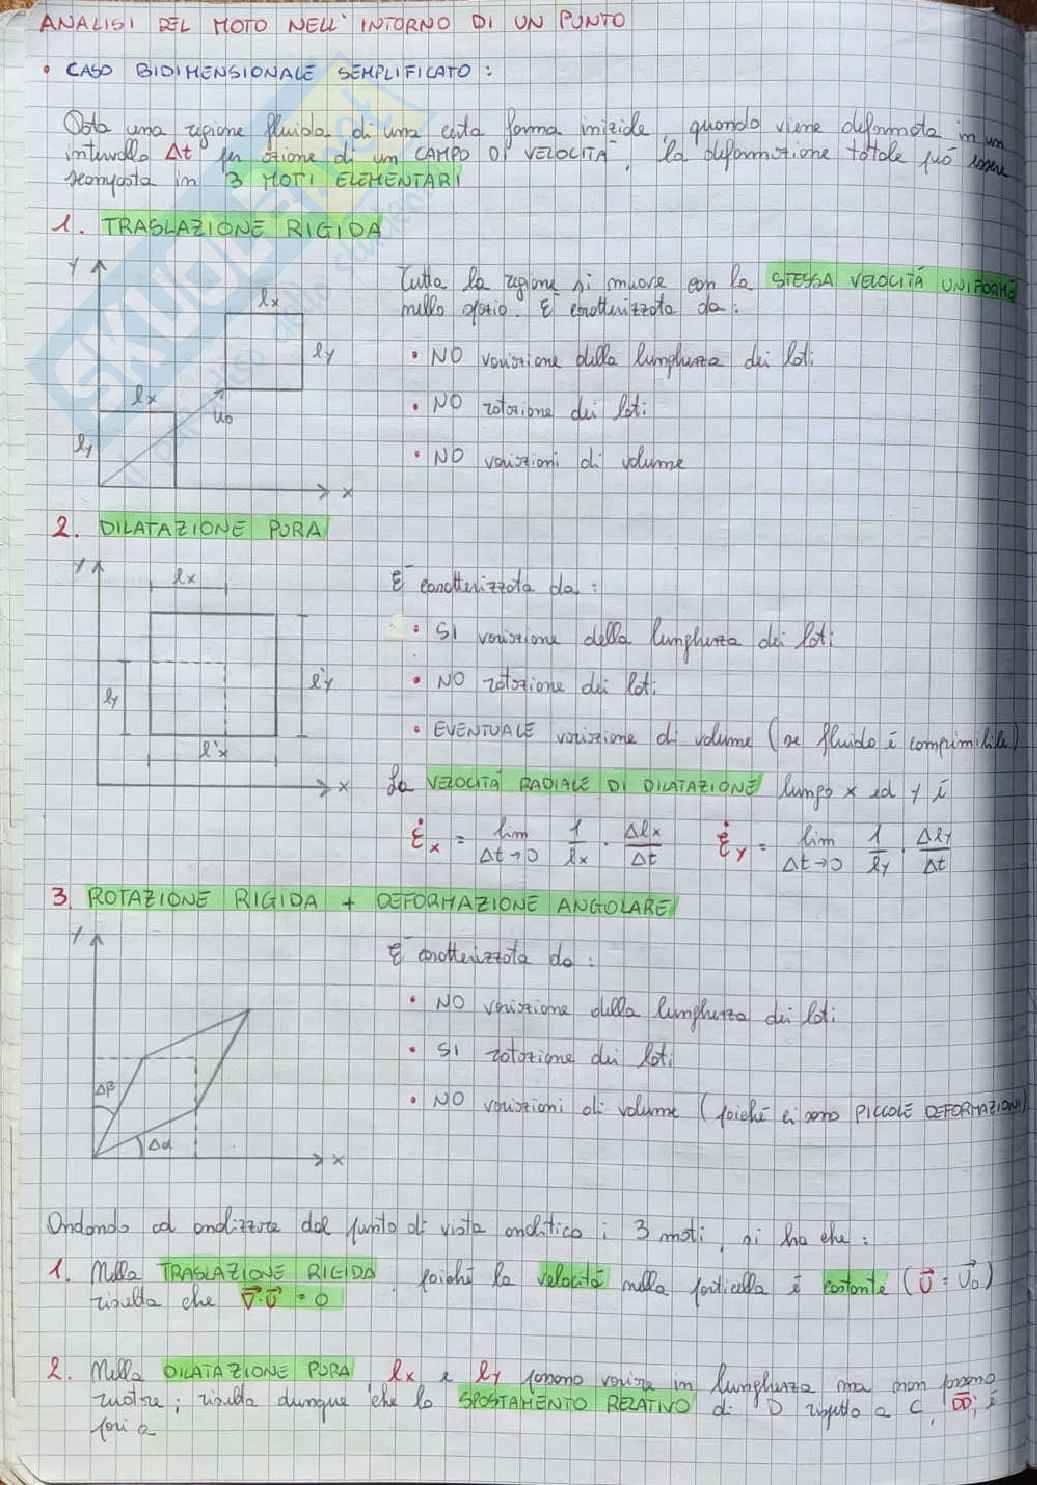 ANALISI DEL MOTO NELL'INTORNO DI UN PUNTO
• CASO BIDIMENSIONALE SEMPLIFICATO :
Data una regione fluida di una certa forma iniziale, quando viene deformata in un
intervallo Δt per azione di un CAMPO DI VELOCITA', la deformazione totale può essere
scomposta in 3 MOTI ELEMENTARI
1. TRASLAZIONE RIGIDA
Y
lx
ly
lx
u₀
ly
x
Tutta la regione si muove con la STESSA VELOCITÁ UNIFORME
nello spazio. È caratterizzata da :
• NO variazione della lunghezza dei lati
• NO rotazione dei lati
• NO variazioni di volume
2. DILATAZIONE PURA
Y
lx
ly
l'y
l'x
x
È caratterizzata da :
• SI variazione della lunghezza dei lati
• NO rotazione dei lati
• EVENTUALE variazione di volume (se fluido è comprimibile)
La VELOCITA' RADIALE DI DILATAZIONE lungo x ed y è
ε̇x = lim Δt→0 1/lx · Δlx/Δt ε̇y = lim Δt→0 1/ly · Δly/Δt
3. ROTAZIONE RIGIDA + DEFORMAZIONE ANGOLARE
Y
Δβ
Δα
x
È caratterizzata da :
• NO variazione della lunghezza dei lati
• SI rotazione dei lati
• NO variazioni di volume (poiché ci sono PICCOLE DEFORMAZIONI)
Andando ad analizzare dal punto di vista analitico i 3 moti, si ha che :
1. Nella TRASLAZIONE RIGIDA, poiché la velocità nella particella è costante (v⃗ = v⃗₀)
risulta che ∇⃗·v⃗ = 0
2. Nella DILATAZIONE PURA lx e ly possono variare in lunghezza ma non possono
ruotare ; risulta dunque che lo SPOSTAMENTO RELATIVO di D rispetto a C, DD', è
pari a
SKUOLA.net